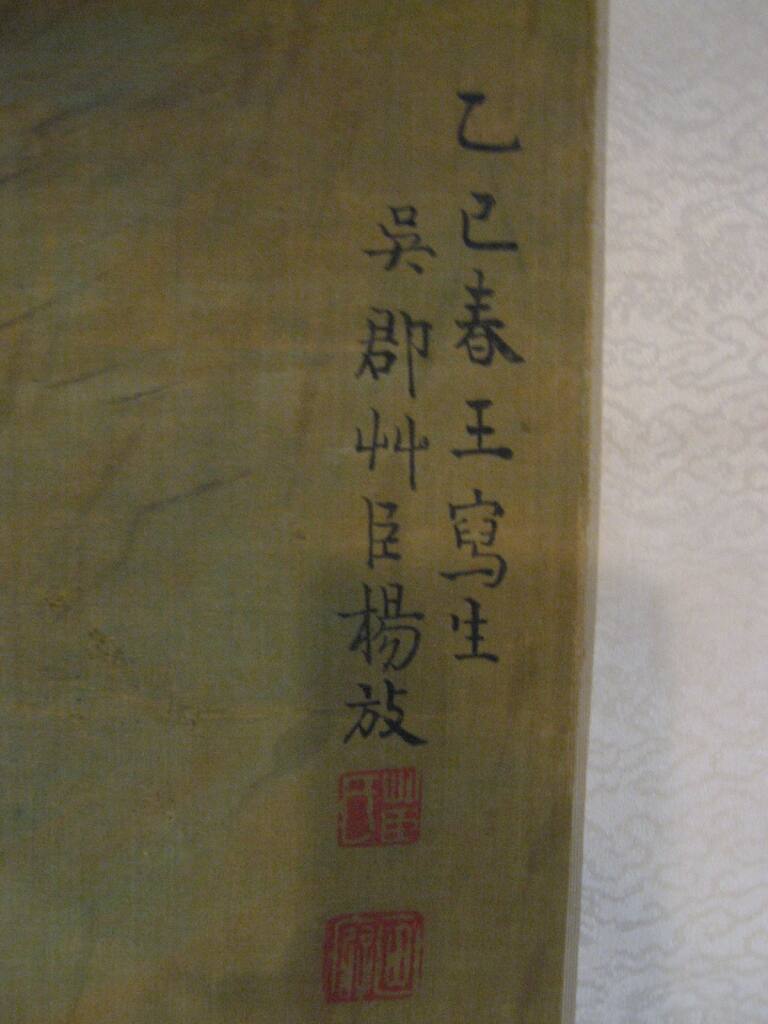 乙已春王寫生
吳郡艸臣楊放